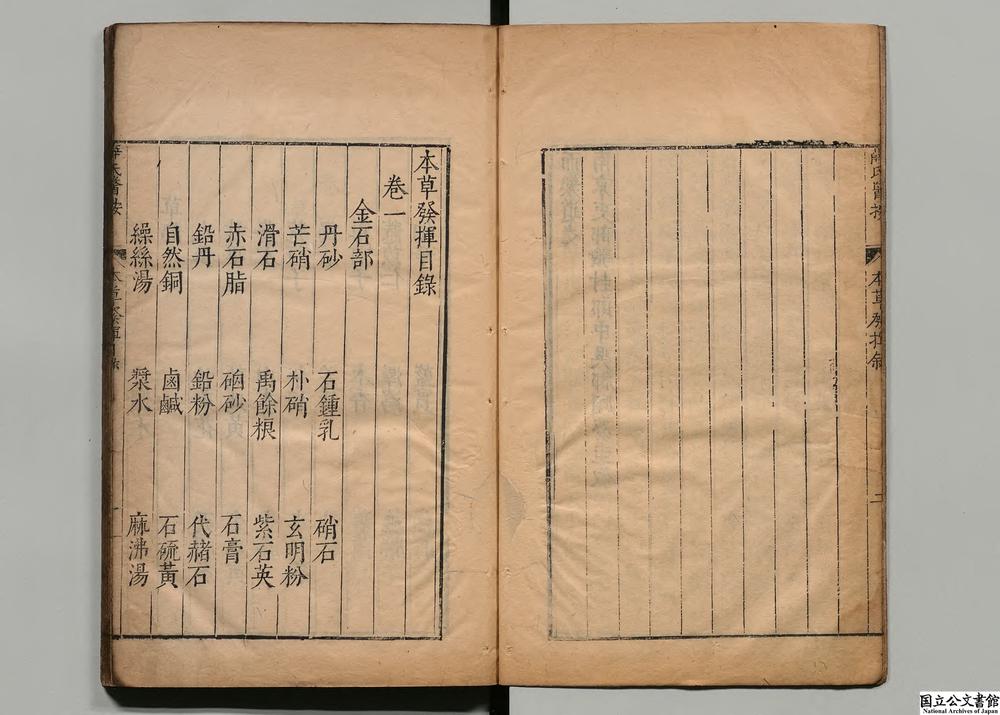 本草發揮叙
二
本草發揮目錄
卷一
金石部
丹砂 石鍾乳 硝石
芒硝 朴硝 玄明粉
滑石 禹餘粮 紫石英
赤石脂 硇砂 石膏
鉛丹 鉛粉 代赭石
自然銅 鹵鹹 石硫黃
繰絲湯 漿水 麻沸湯
本草發揮目錄
一
国立公文書館
National Archives of Japan